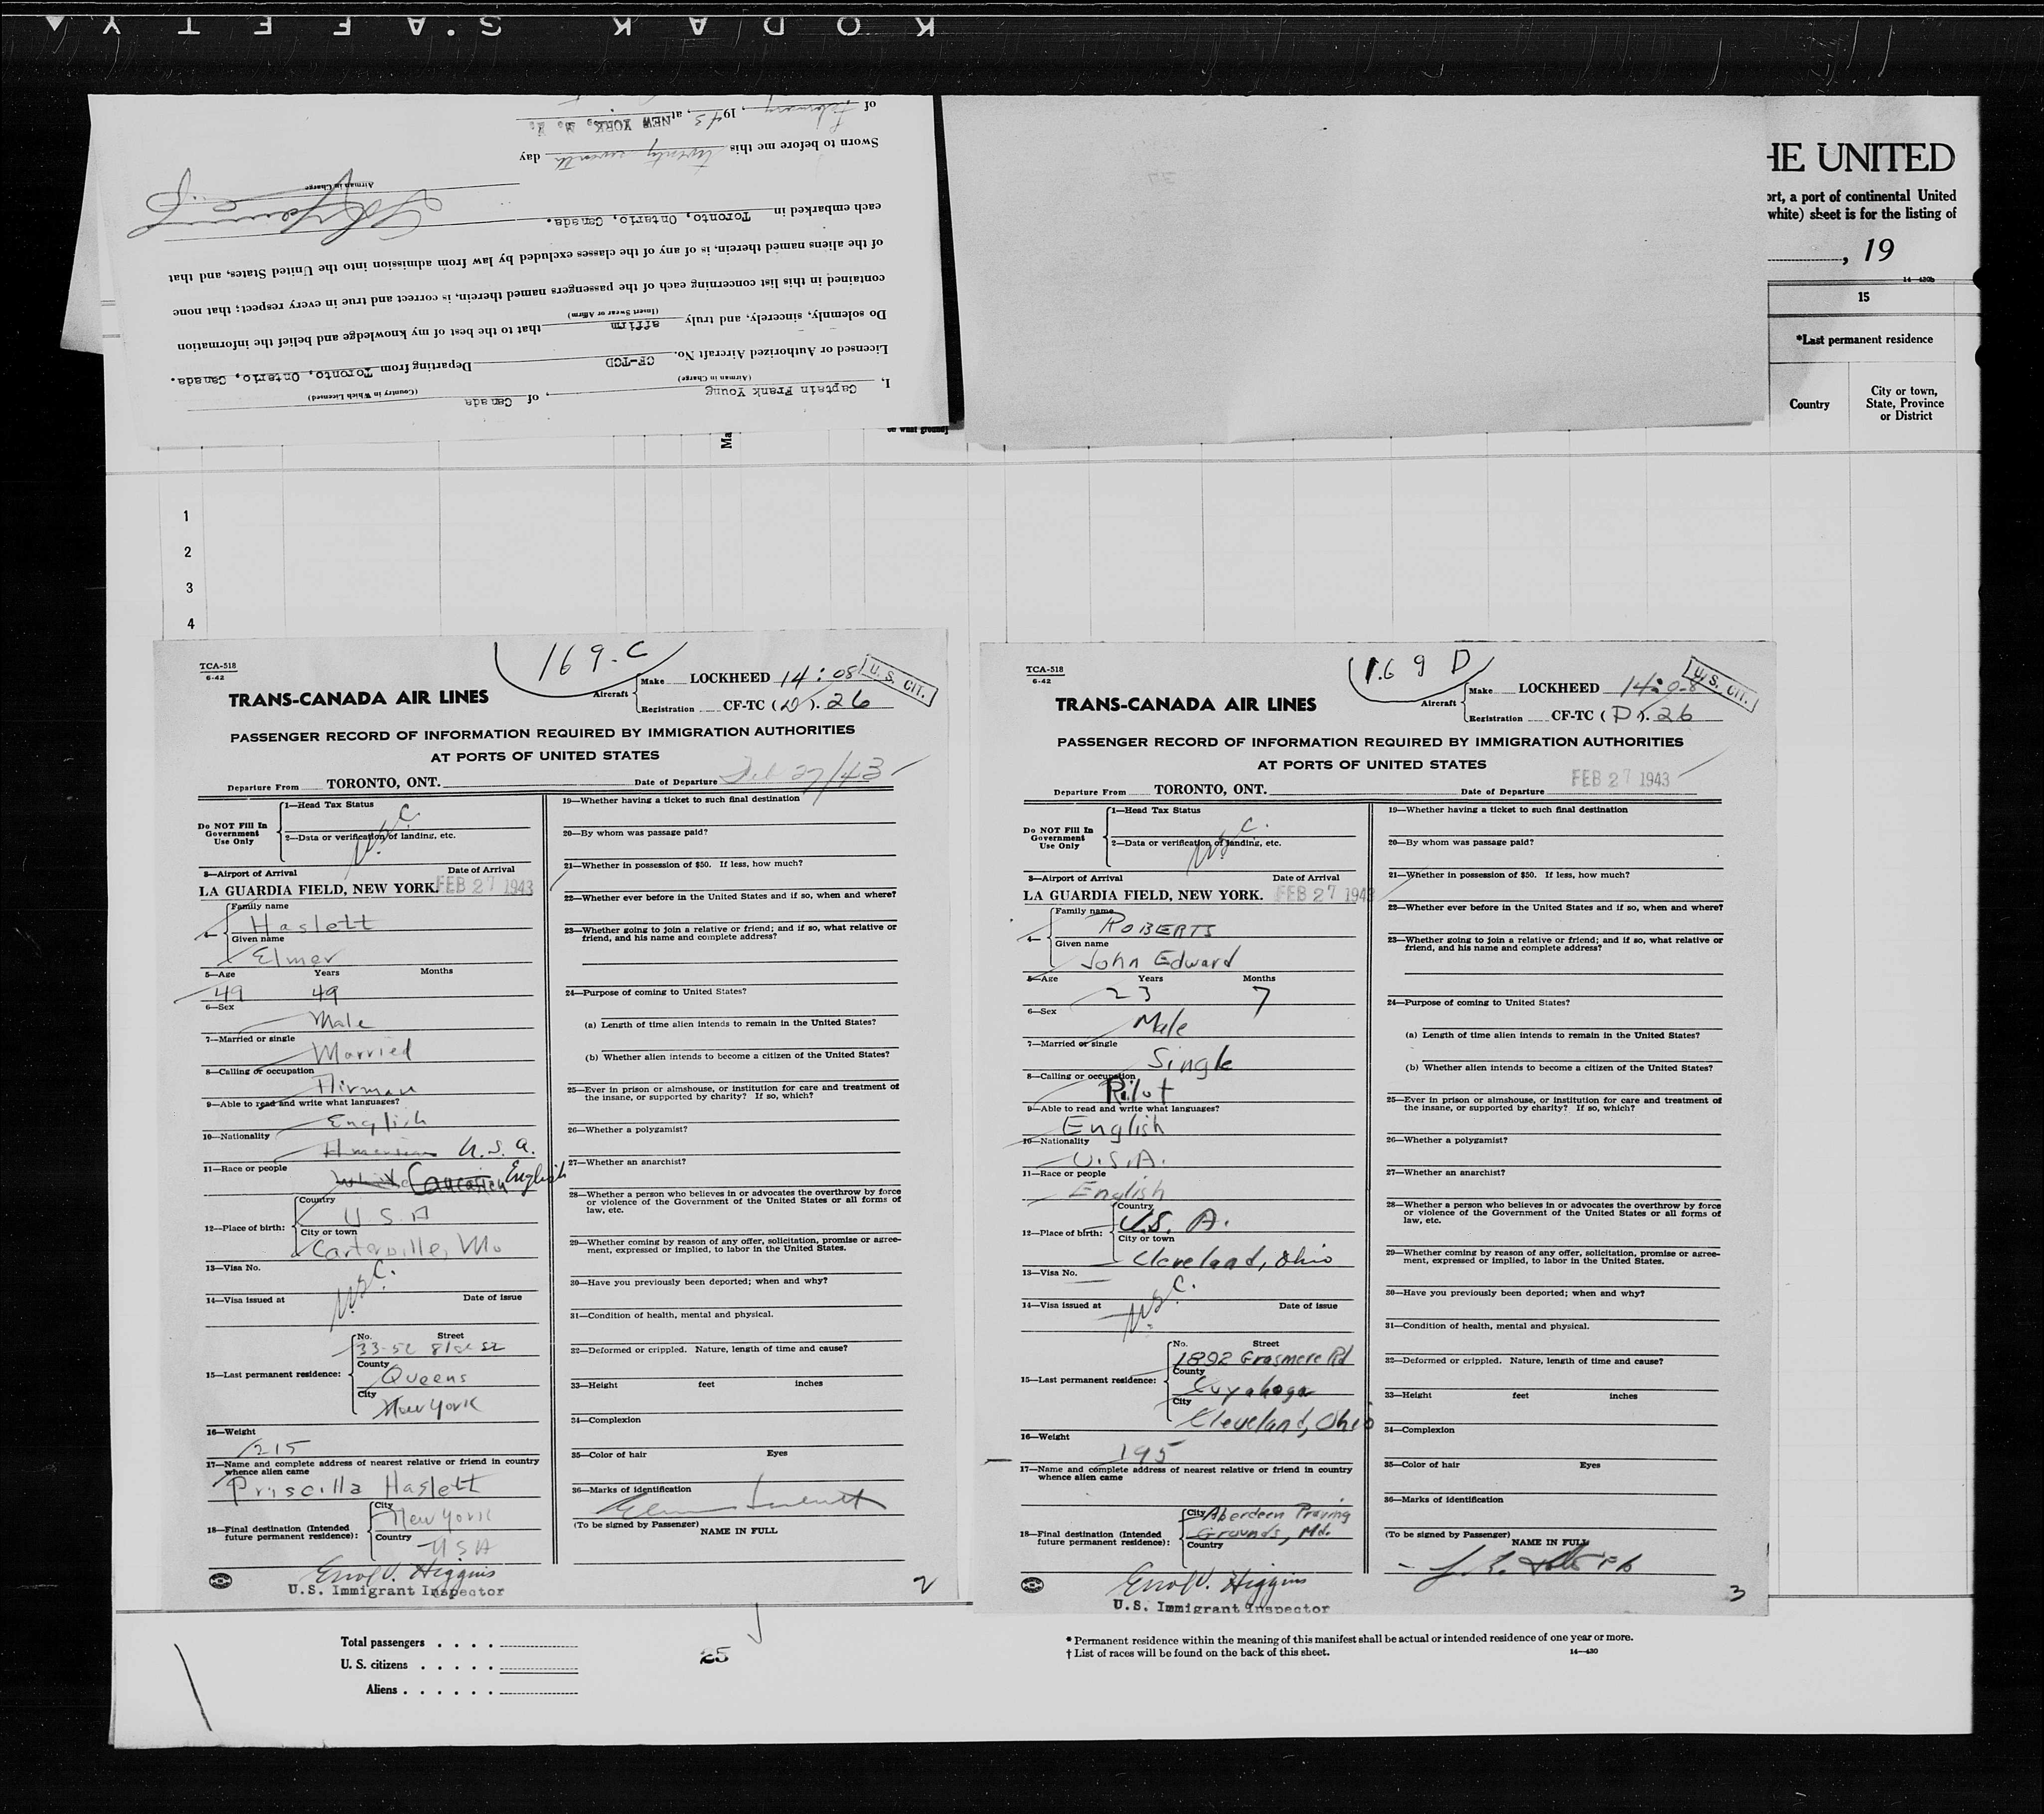 KODAK SAFETY
I, Captain Frank Young, of Canada
(Airman in Charge) (Country in Which Licensed)
Licensed or Authorized Aircraft No. CF-TCD Departing from Toronto, Ontario, Canada.
Do solemnly, sincerely, and truly affirm that to the best of my knowledge and belief the information
(Insert Swear or Affirm)
contained in this list concerning each of the passengers named therein, is correct and true in every respect; that none
of the aliens named therein, is of any of the classes excluded by law from admission into the United States, and that
each embarked in Toronto, Ontario, Canada.
Airman in Charge
Sworn to before me this twenty seventh day
of February, 1943, at NEW YORK, N. Y.
HE UNITED
ort, a port of continental United
white) sheet is for the listing of
, 19
14—430b
15
*Last permanent residence
Country
City or town,
State, Province
or District
Ma
1
2
3
4
169-C
TCA-518
6-42
TRANS-CANADA AIR LINES
Aircraft
Make LOCKHEED 14:08
Registration CF-TC (D). 26
U. S. CIT.
PASSENGER RECORD OF INFORMATION REQUIRED BY IMMIGRATION AUTHORITIES
AT PORTS OF UNITED STATES
Departure From TORONTO, ONT. Date of Departure Feb 27/43
Do NOT Fill In
Government
Use Only
1—Head Tax Status
2—Data or verification of landing, etc.
3—Airport of Arrival Date of Arrival
LA GUARDIA FIELD, NEW YORK. FEB 27 1943
4—
Family name
Haslett
Given name
Elmer
5—Age Years Months
49 49
6—Sex
Male
7—Married or single
Married
8—Calling or occupation
Airman
9—Able to read and write what languages?
English
10—Nationality
American U.S.A.
11—Race or people
White Caucasion English
12—Place of birth:
Country
U S A
City or town
Carterville, Mo
13—Visa No.
14—Visa issued at Date of issue
15—Last permanent residence:
No. Street
33-52 81st St
County
Queens
City
New York
16—Weight
215
17—Name and complete address of nearest relative or friend in country
whence alien came
Priscilla Haslett
18—Final destination (Intended
future permanent residence):
City
New York
Country
U S A
Errol V. Higgins
U.S. Immigrant Inspector
19—Whether having a ticket to such final destination
20—By whom was passage paid?
21—Whether in possession of $50. If less, how much?
22—Whether ever before in the United States and if so, when and where?
23—Whether going to join a relative or friend; and if so, what relative or
friend, and his name and complete address?
24—Purpose of coming to United States?
(a) Length of time alien intends to remain in the United States?
(b) Whether alien intends to become a citizen of the United States?
25—Ever in prison or almshouse, or institution for care and treatment of
the insane, or supported by charity? If so, which?
26—Whether a polygamist?
27—Whether an anarchist?
28—Whether a person who believes in or advocates the overthrow by force
or violence of the Government of the United States or all forms of
law, etc.
29—Whether coming by reason of any offer, solicitation, promise or agree-
ment, expressed or implied, to labor in the United States.
30—Have you previously been deported; when and why?
31—Condition of health, mental and physical.
32—Deformed or crippled. Nature, length of time and cause?
33—Height feet inches
34—Complexion
35—Color of hair Eyes
36—Marks of identification
Elmer Haslett
(To be signed by Passenger) NAME IN FULL
2
169 D
TCA-518
6-42
TRANS-CANADA AIR LINES
Aircraft
Make LOCKHEED 14:08
Registration CF-TC (D). 26
U. S. CIT.
PASSENGER RECORD OF INFORMATION REQUIRED BY IMMIGRATION AUTHORITIES
AT PORTS OF UNITED STATES
Departure From TORONTO, ONT. Date of Departure FEB 27 1943
Do NOT Fill In
Government
Use Only
1—Head Tax Status
2—Data or verification of landing, etc.
3—Airport of Arrival Date of Arrival
LA GUARDIA FIELD, NEW YORK. FEB 27 1943
4—
Family name
ROBERTS
Given name
John Edward
5—Age Years Months
23 7
6—Sex
Male
7—Married or single
Single
8—Calling or occupation
Pilot
9—Able to read and write what languages?
English
10—Nationality
U.S.A.
11—Race or people
English
12—Place of birth:
Country
U.S. A.
City or town
Cleveland, Ohio
13—Visa No.
14—Visa issued at Date of issue
15—Last permanent residence:
No. Street
1892 Grasmere Rd
County
Cuyahoga
City
Cleveland, Ohio
16—Weight
195
17—Name and complete address of nearest relative or friend in country
whence alien came
18—Final destination (Intended
future permanent residence):
City Aberdeen Proving
Grounds, Md.
Country
Errol V. Higgins
U.S. Immigrant Inspector
19—Whether having a ticket to such final destination
20—By whom was passage paid?
21—Whether in possession of $50. If less, how much?
22—Whether ever before in the United States and if so, when and where?
23—Whether going to join a relative or friend; and if so, what relative or
friend, and his name and complete address?
24—Purpose of coming to United States?
(a) Length of time alien intends to remain in the United States?
(b) Whether alien intends to become a citizen of the United States?
25—Ever in prison or almshouse, or institution for care and treatment of
the insane, or supported by charity? If so, which?
26—Whether a polygamist?
27—Whether an anarchist?
28—Whether a person who believes in or advocates the overthrow by force
or violence of the Government of the United States or all forms of
law, etc.
29—Whether coming by reason of any offer, solicitation, promise or agree-
ment, expressed or implied, to labor in the United States.
30—Have you previously been deported; when and why?
31—Condition of health, mental and physical.
32—Deformed or crippled. Nature, length of time and cause?
33—Height feet inches
34—Complexion
35—Color of hair Eyes
36—Marks of identification
(To be signed by Passenger)
NAME IN FULL
3
Total passengers
U. S. citizens
Aliens
25
* Permanent residence within the meaning of this manifest shall be actual or intended residence of one year or more.
† List of races will be found on the back of this sheet. 14—430